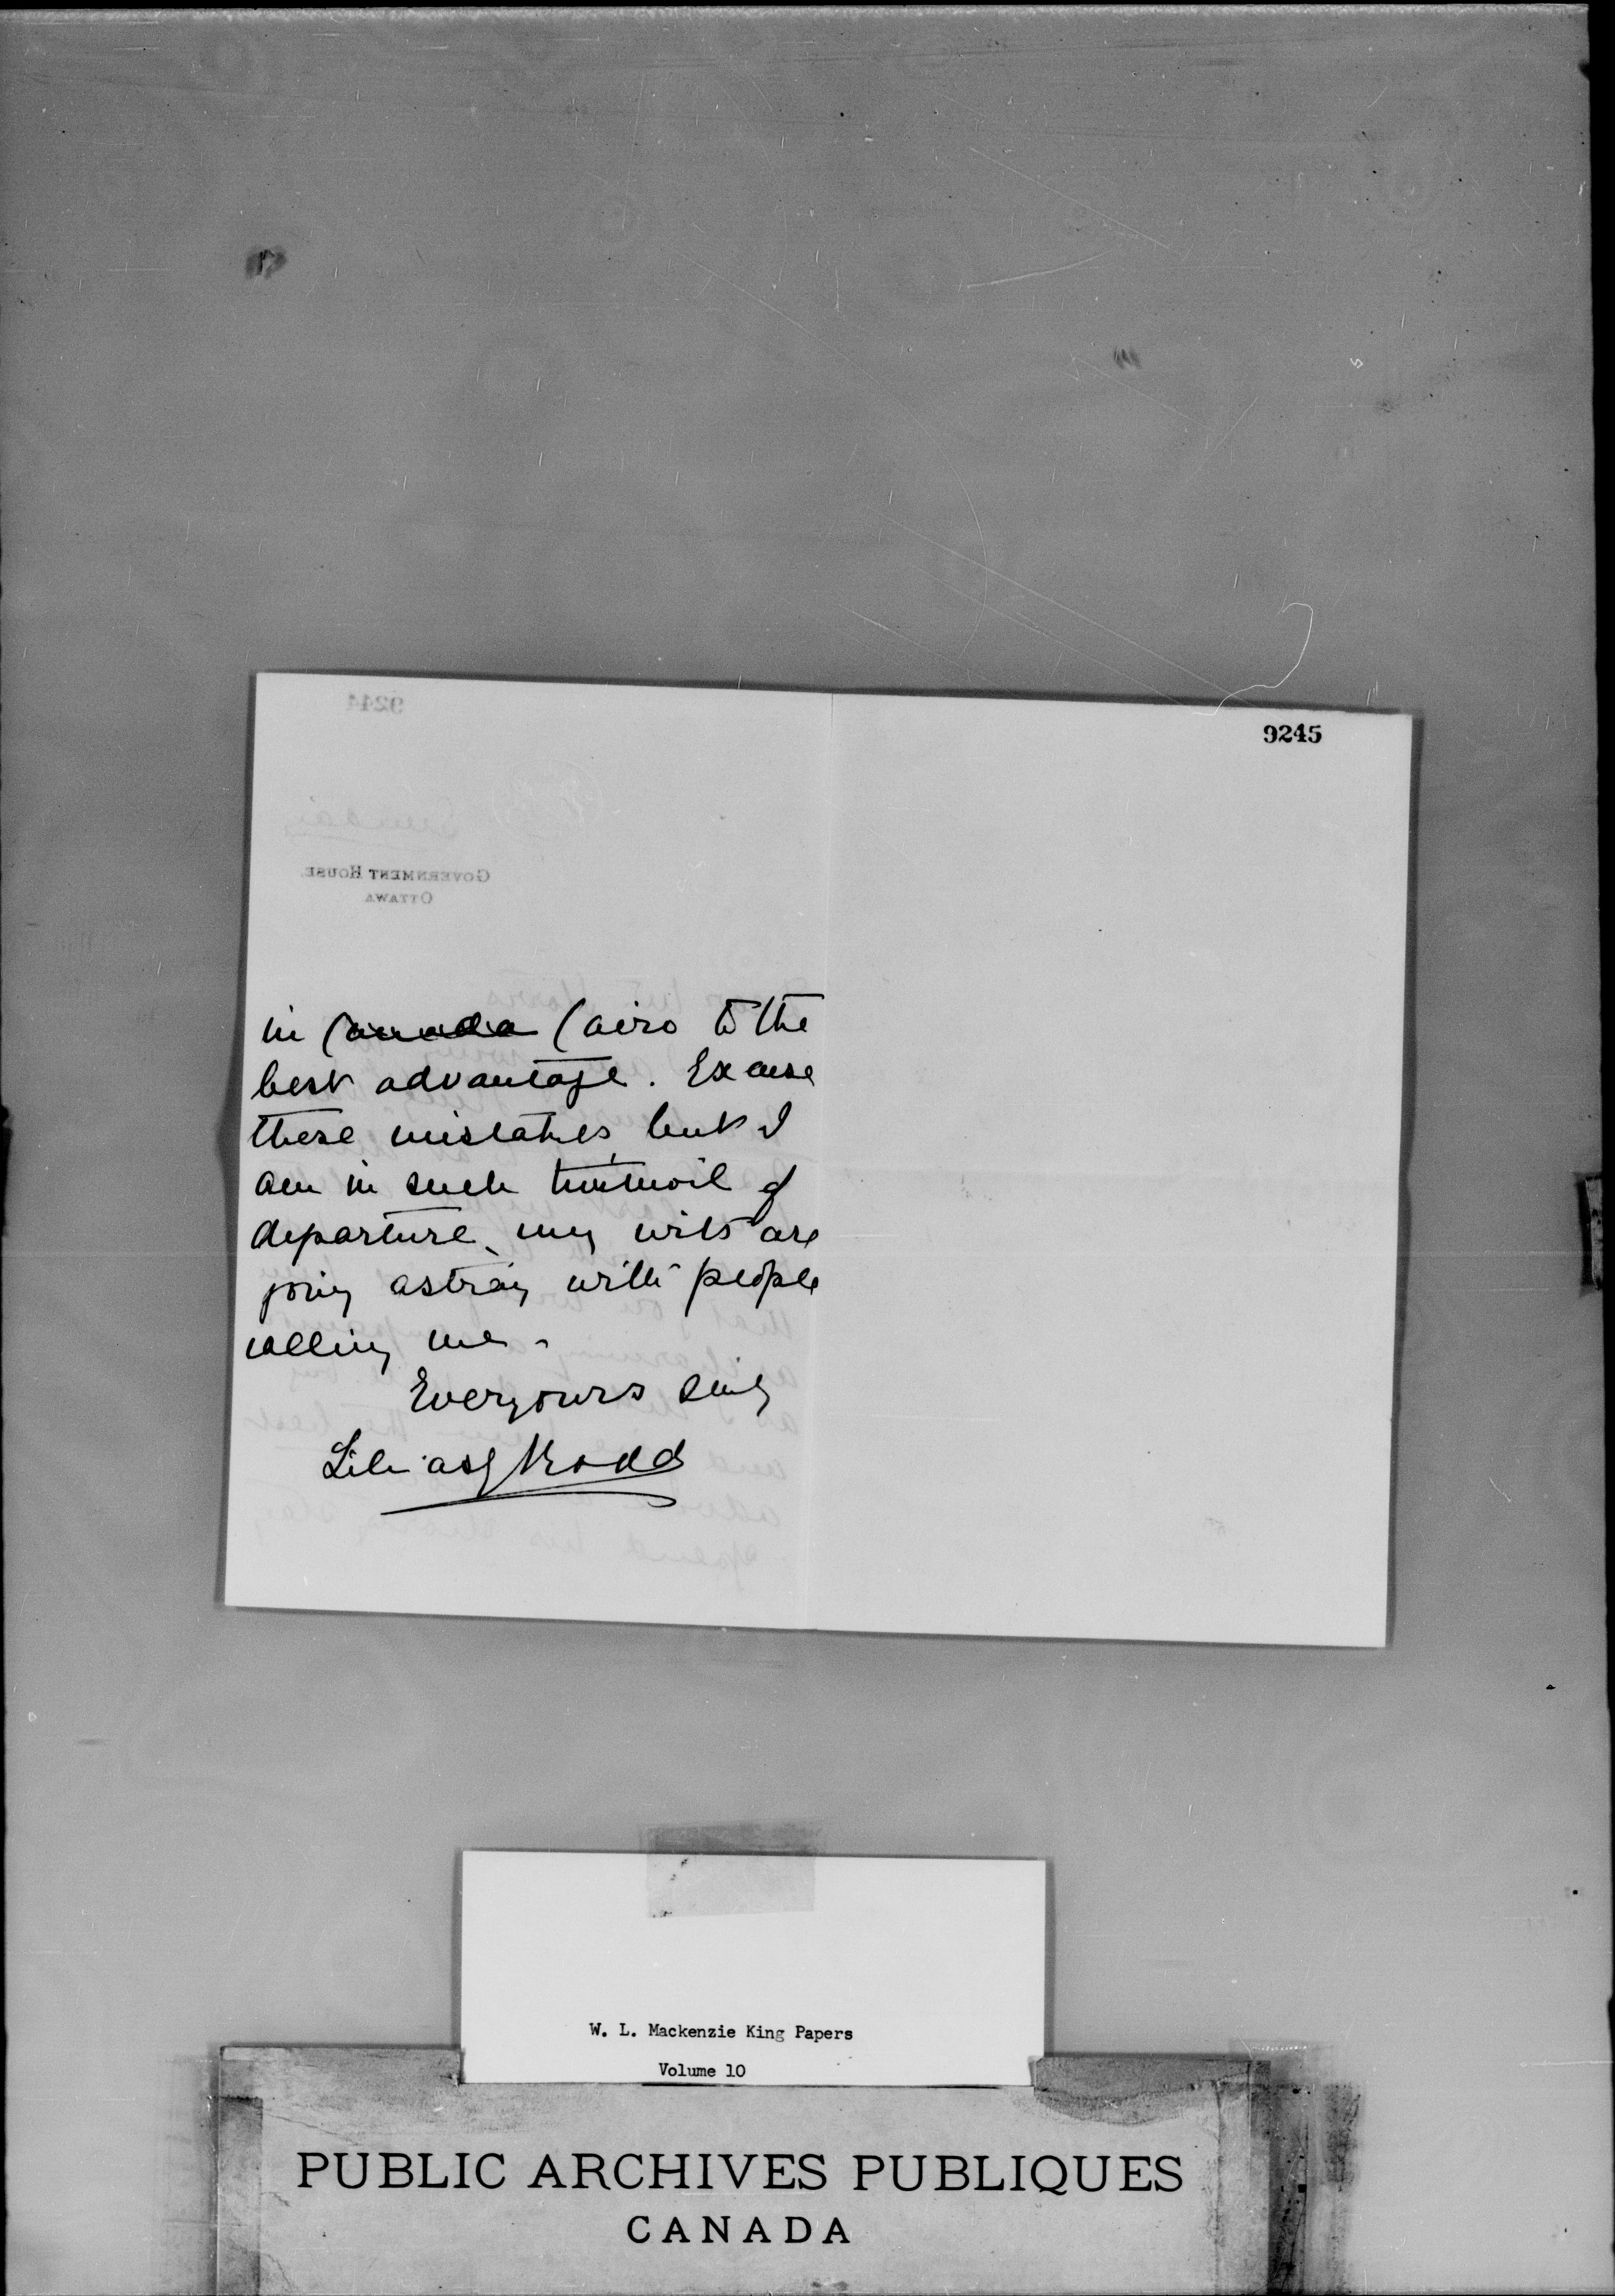 9245
in Canada Cairo to the
best advantage. Excuse
these mistakes, but I
am in such turmoil of
departure, my wits are
going astray with people
calling me -
Ever yours sincly
Lilias Rodd
GOVERNMENT HOUSE.
OTTAWA
9244
W. L. Mackenzie King Papers
Volume 10
PUBLIC ARCHIVES PUBLIQUES
CANADA